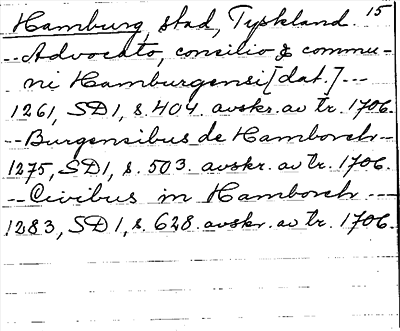 Hamburg, stad, Tyskland. 15
-- Advocato, consilio & commu-
ni Hamburgensi [dat.] ---
1261, SD1, s. 404. avskr. av tr. 1706.
-- Burgensibus de Hamborch --
1275, SD1, s. 503. avskr. av tr. 1706.
-- Civibus in Hamborch ---
1283, SD1, s. 628. avskr. av tr. 1706.